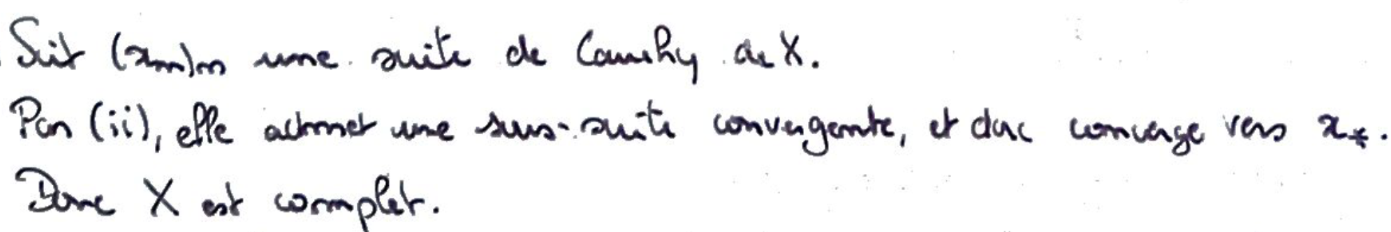 Soit (xₙ)ₙ une suite de Cauchy de X.
Par (ii), elle admet une sous-suite convergente, et donc converge vers x_*.
Donc X est complet.